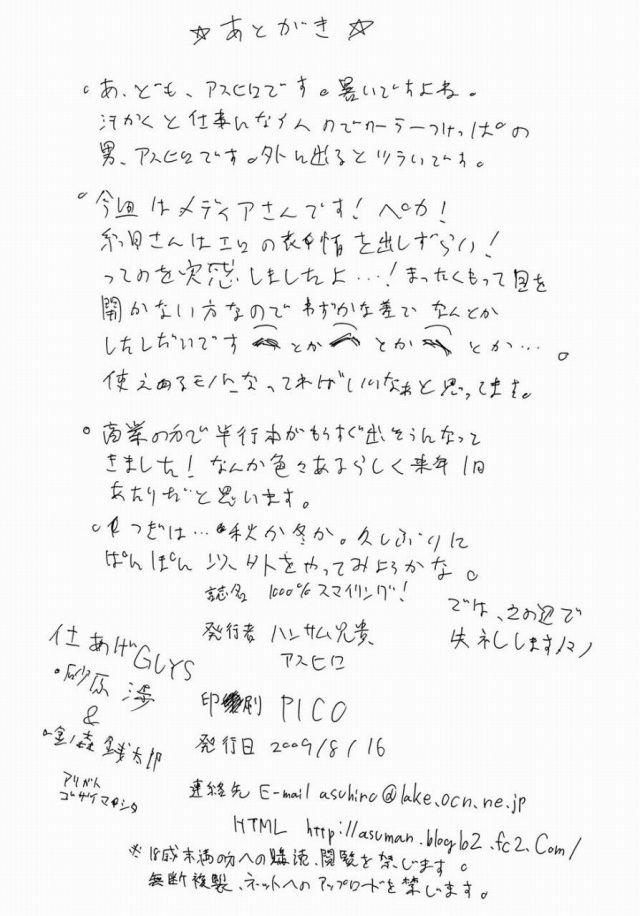 ☆あとがき☆
○あ、ども、アスヒロです。暑いですよね。
汗かくと仕事になんないのでクーラーつけっぱの
男、アスヒロです。外に出るとツライです。
○今回はメディアさんです!ペカ!
糸目さんはエロの表情を出しずらい!
ってのを実感しましたよ…!まったくもって目を
開かない方なのでわずかな差でなんとか
したしだいです とか とか とか…。
使えるモノになってればいいなぁと思ってます。
○商業の方で単行本がもうすぐ出そうんなって
きました!なんか色々あるらしく来年1月
あたりだと思います。
○つぎは…秋か冬か。久しぶりに
ぽんぽん以外をやってみようかな。
では、この辺で
失礼します
誌名 1000%スマイリング!
発行者 ハンサム兄貴
アスヒロ
印刷 PICO
発行日 2009/8/16
連絡先 E-mail asuhiro@lake.ocn.ne.jp
HTML http://asuman.blog62.fc2.com/
仕あげGUYS
・砂原 渉
&
・金森 銭太郎
アリガト
ゴザイマシタ
※18歳未満の方への購読、閲覧を禁じます。
無断複製、ネットへのアップロードを禁じます。